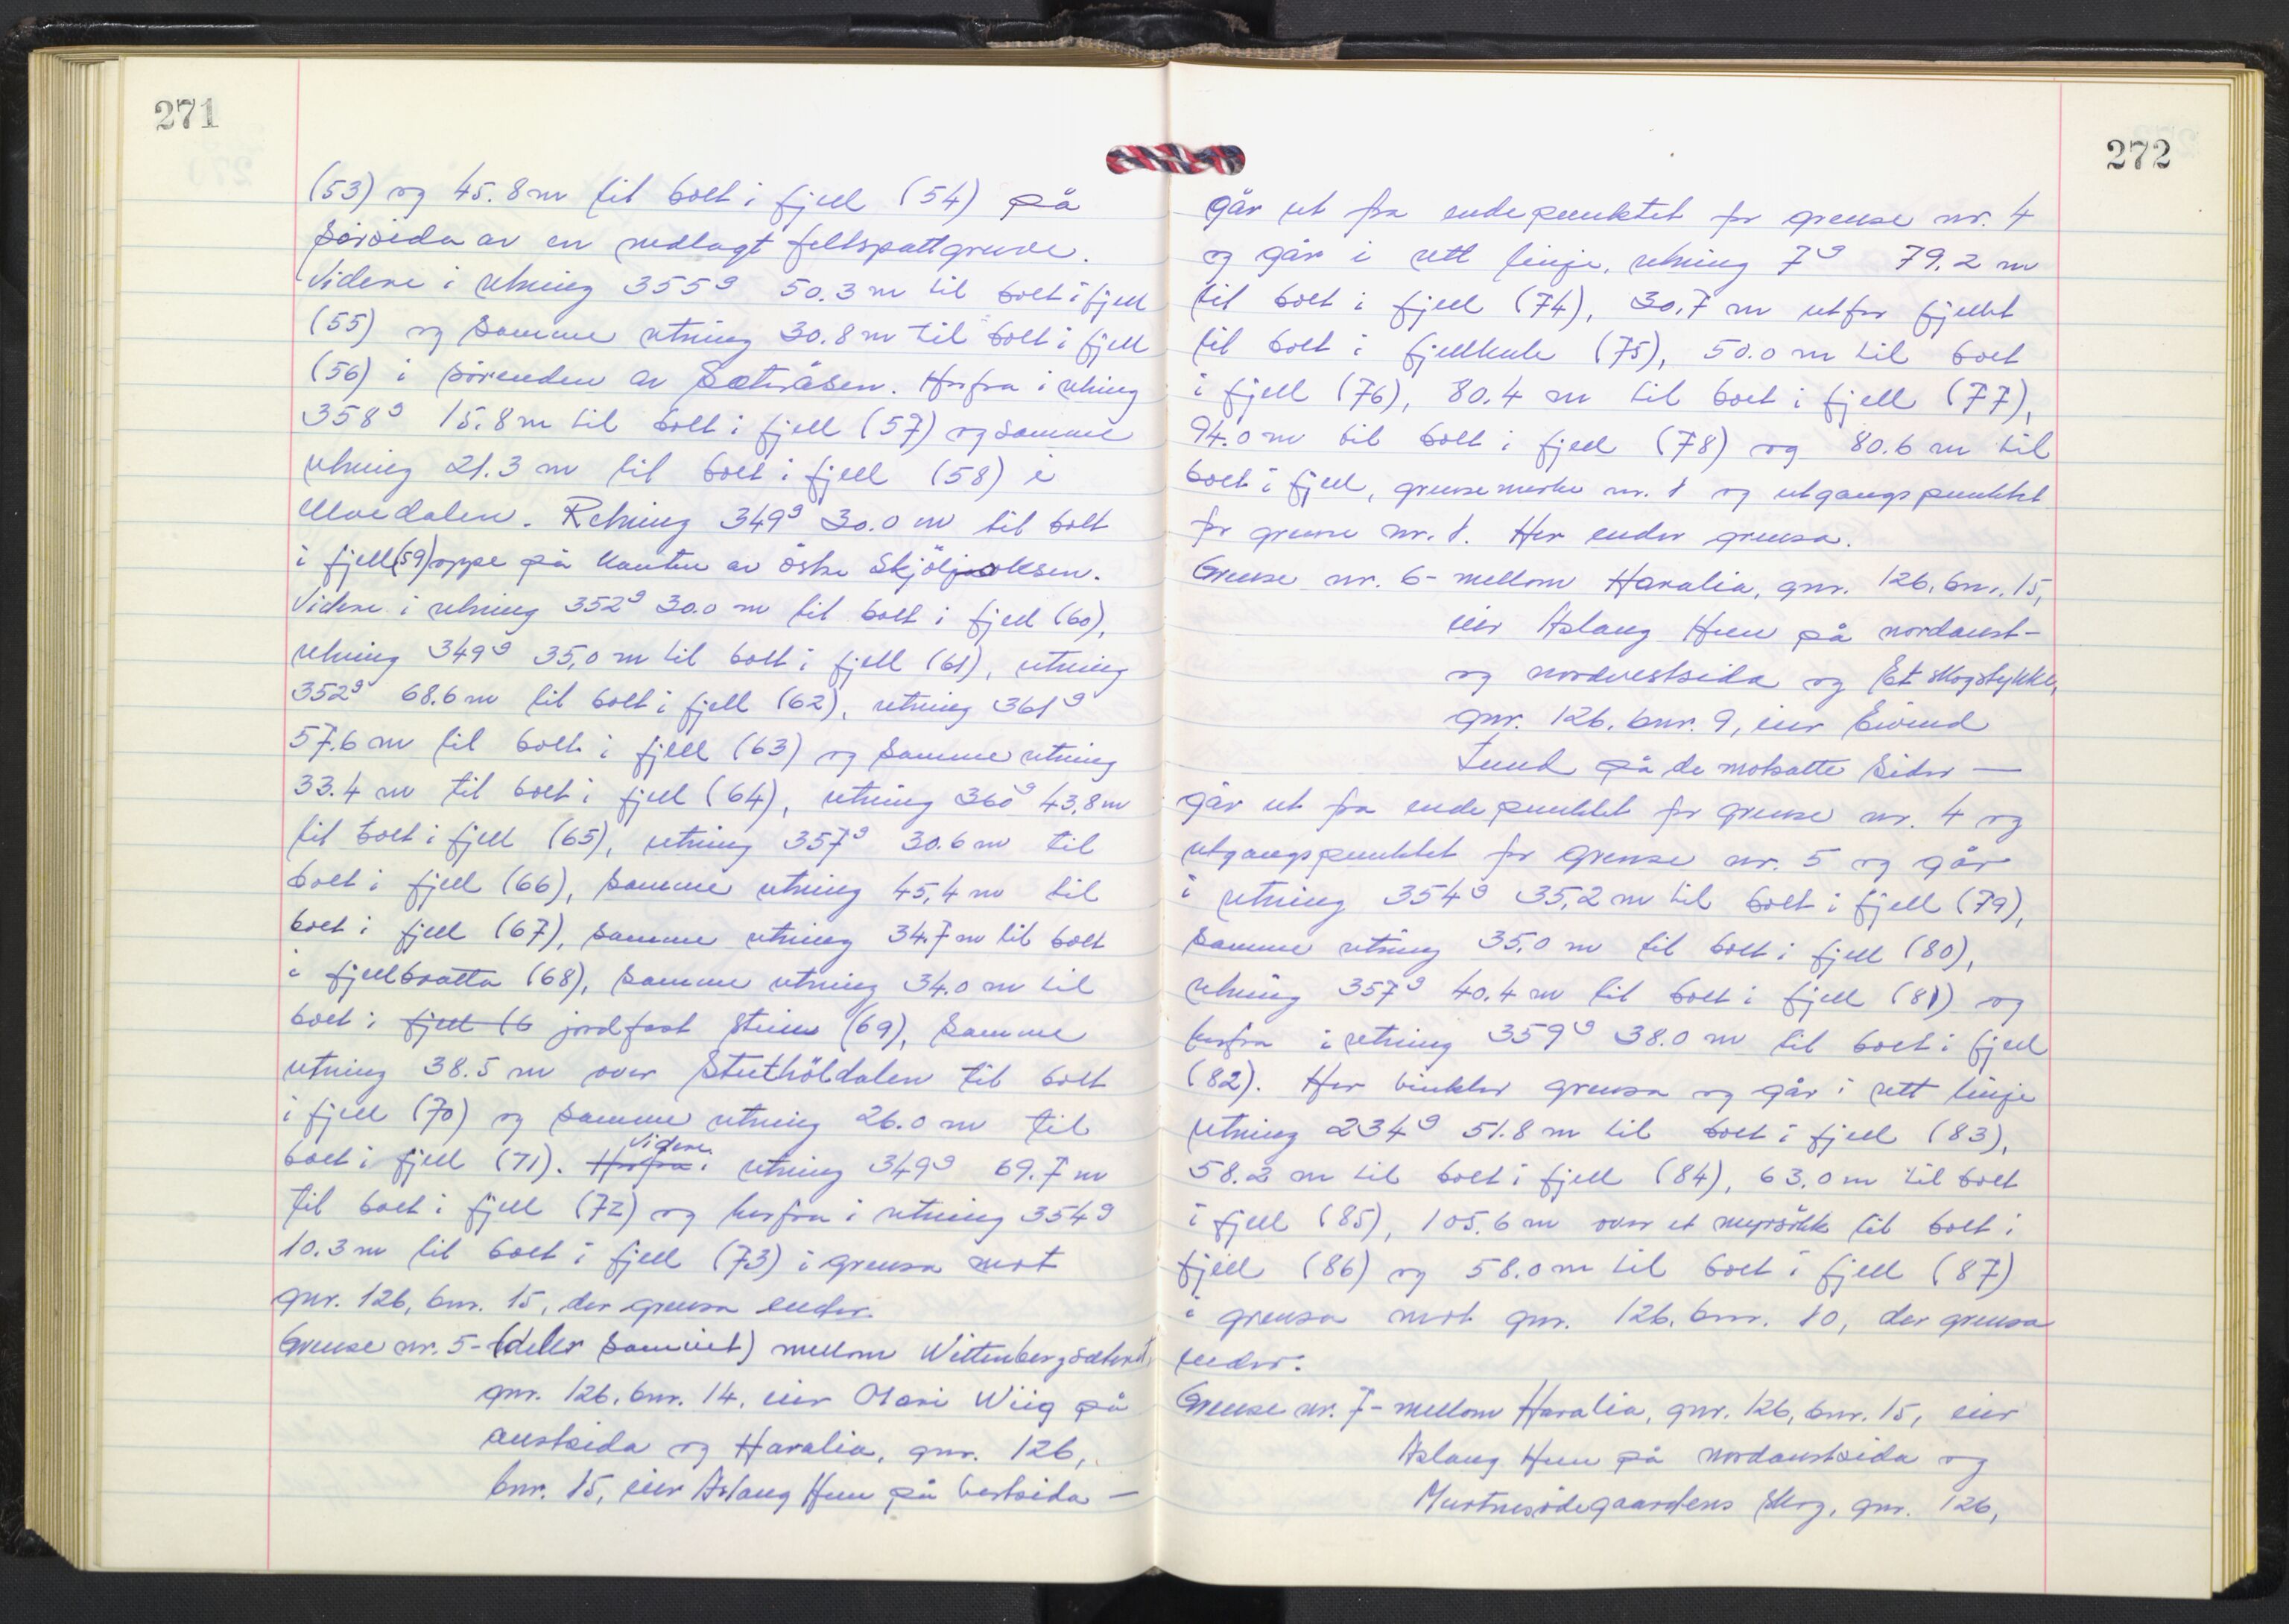 271
(53) og 45.8 m til bolt i fjell (54) på
sørsida av en nedlagt feltspattgruve.
Videre i retning 355g 50.3 m til bolt i fjell
(55) og samme retning 30.8 m til bolt i fjell
(56) i sørenden av Sæteråsen. Herfra i retning
358g 15.8 m til bolt i fjell (57) og samme
retning 21.3 m til bolt i fjell (58) i
dalen. Retning 349g 30.0 m til bolt
i fjell (59) oppe på kanten av östre.
Videre i retning 352g 30.0 m til bolt i fjell (60),
retning 349g 35,0 m til bolt i fjell (61), retning
352g 68.6 m til bolt i fjell (62), retning 361g
57.6 m til bolt i fjell (63) og samme retning
33.4 m til bolt i fjell (64), retning 360g 43,8 m
til bolt i fjell (65), retning 357g 30.6 m til
bolt i fjell (66), samme retning 45,4 m til
bolt i fjell (67), samme retning 34.7 m til bolt
i fjellbratta (68), samme retning 34.0 m til
bolt i fjell (6 jordfast stein (69), samme
retning 38.5 m over Stuthöldalen til bolt
i fjell (70) og samme retning 26.0 m til
bolt i fjell (71). Herfra Videre i retning 349g 69.7 m
til bolt i fjell (72) og herfra i retning 354g
10.3 m til bolt i fjell (73) i grensa mot
gnr. 126, bnr. 15, der grensa ender.
Grense nr. 5 - (deler sameiet) mellom Wittenbergsæteret,
gnr. 126. bnr. 14. eier Olav Wiig på
austsida og Haralia, gnr. 126,
bnr. 15, eier Aslaug Hun på vestsida —
272
går ut fra endepunktet for grense nr. 4
og går i rett linje, retning 7g 79.2 m
til bolt i fjell (74), 30.7 m utfor fjellet
til bolt i fjellhule (75), 50.0 m til bolt
i fjell (76), 80.4 m til bolt i fjell (77),
94.0 m til bolt i fjell (78) og 80.6 m til
bolt i fjell, grensemerke nr. 1 og utgangspunktet
for grense nr. 1. Her ender grensa.
Grense nr. 6 - mellom Haralia, gnr. 126, bnr. 15,
eier Aslaug Hun på nordaust-
og nordvestsida og Et skogstykke,
gnr. 126. bnr. 9, eier Eivind
Lund på de motsatte sider —
går ut fra endepunktet for grense nr. 4 og
utgangspunktet for grense nr. 5 og går
i retning 354g 35,2 m til bolt i fjell (79),
samme retning 35.0 m til bolt i fjell (80),
retning 357g 40.4 m til bolt i fjell (81) og
herfra i retning 359g 38.0 m til bolt i fjell
(82). Her vinkler grensa og går i rett linje
retning 234g 51.8 m til bolt i fjell (83),
58.2 m til bolt i fjell (84), 63.0 m til bolt
i fjell (85), 105.6 m over et myrsökk til bolt i
fjell (86) og 58.0 m til bolt i fjell (87)
i grensa mot gnr. 126. bnr. 10, der grensa
ender.
Grense nr. 7 - mellom Haralia, gnr. 126, bnr. 15, eier
Aslaug Hun på nordaustsida og
Murtnesødegaardens skog, gnr. 126,